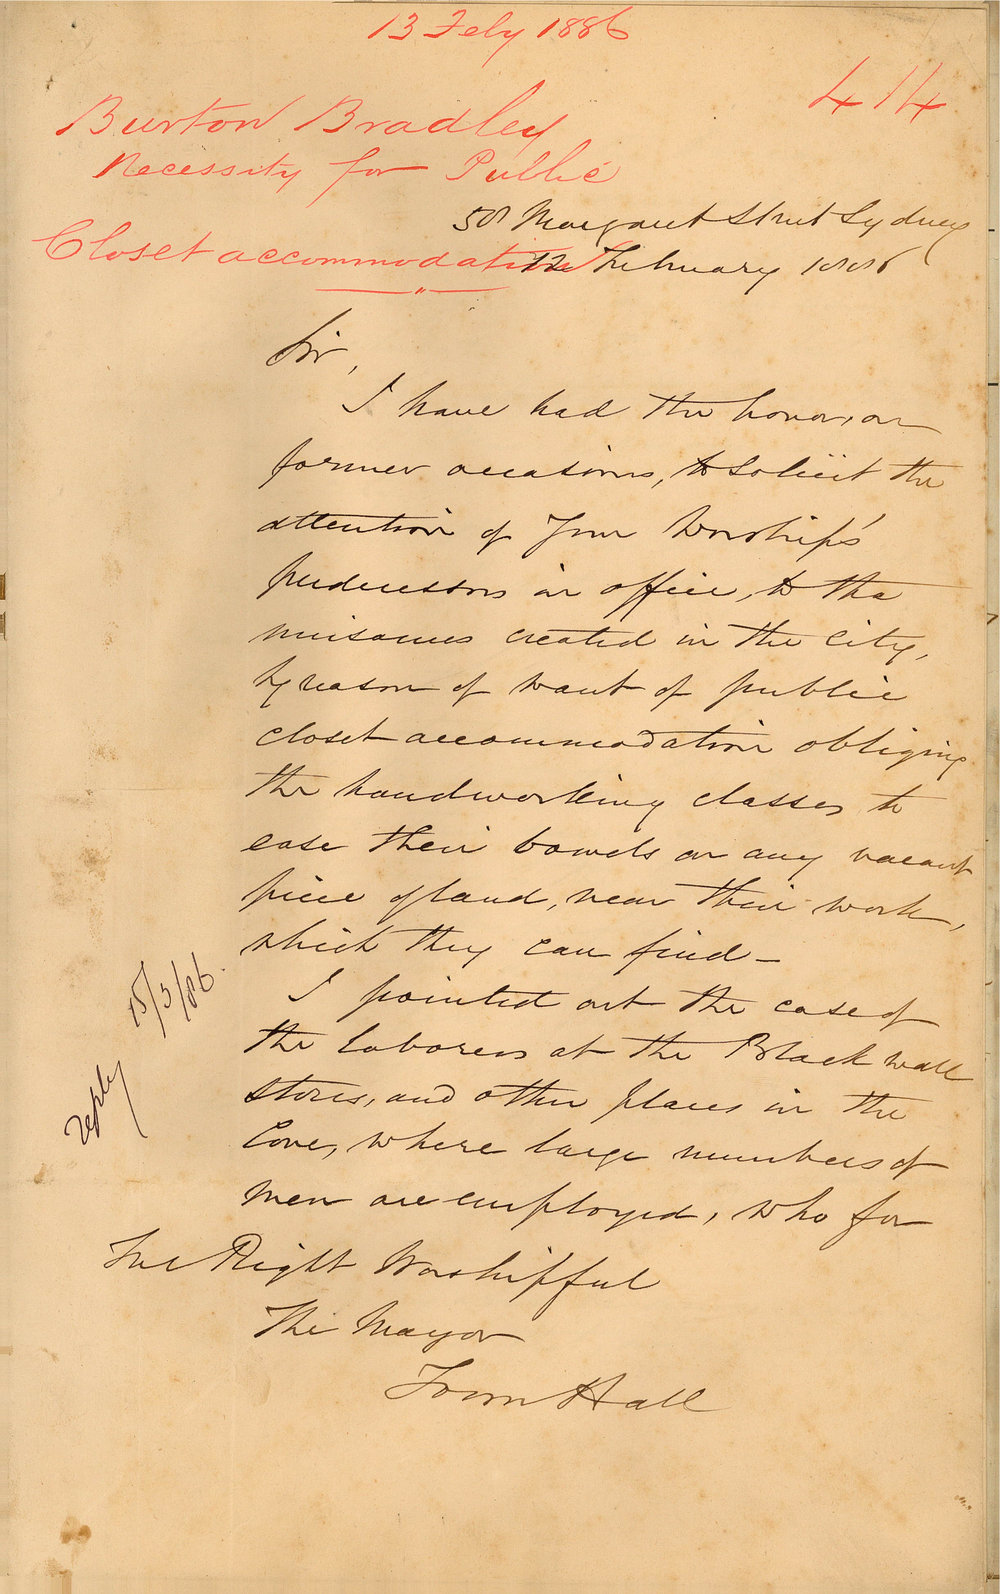 13 Feby 1886
414
Burton Bradley
Necessity for Public
Closet accommodation
58 Margaret Street Sydney
12 February 1886
Sir,
I have had the honor, on
former occasions, to solicit the
attention of Your Worship's
predecessors in office, to the
nuisances created in the city,
by reason of want of public
closet accommodation obliging
the handworking classes to
ease their bowels on any vacant
piece of land, near their work,
which they can find –
I pointed out the case of
the laborers at the Black wall
stores, and other places in the
Cove, where large numbers of
men are employed, who for
reply 15/3/86.
The Right Worshipful
The Mayor
Town Hall